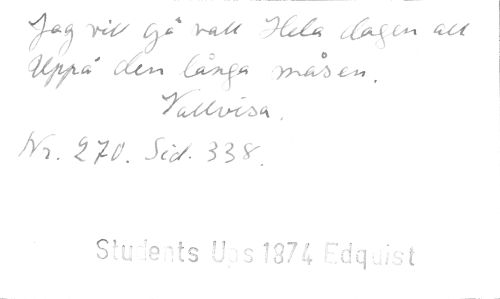 Jag vill gå vall Hela dagen all
Uppå den långa måsen.
Vallvisa.
Nr. 270. Sid. 338.
Students Ups 1874 Edquist